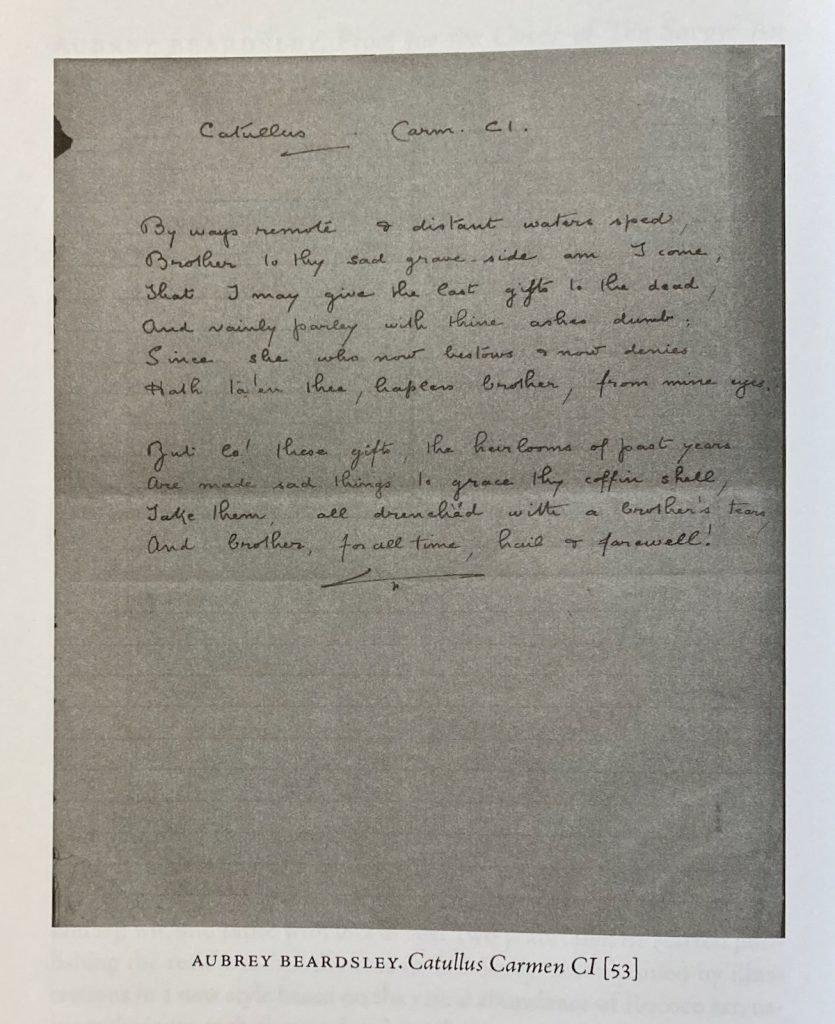 Catullus . Carm. CI.
By ways remote & distant waters sped,
Brother to thy sad grave-side am I come,
That I may give the last gifts to the dead,
And vainly parley with thine ashes dumb;
Since she who now bestows & now denies
Hath ta'en thee, hapless brother, from mine eyes.
But lo! these gifts, the heirlooms of past years
Are made sad things to grace thy coffin shell,
Take them, all drenchèd with a brother's tears,
And brother, for all time, hail & farewell!
AUBREY BEARDSLEY. Catullus Carmen CI [53]